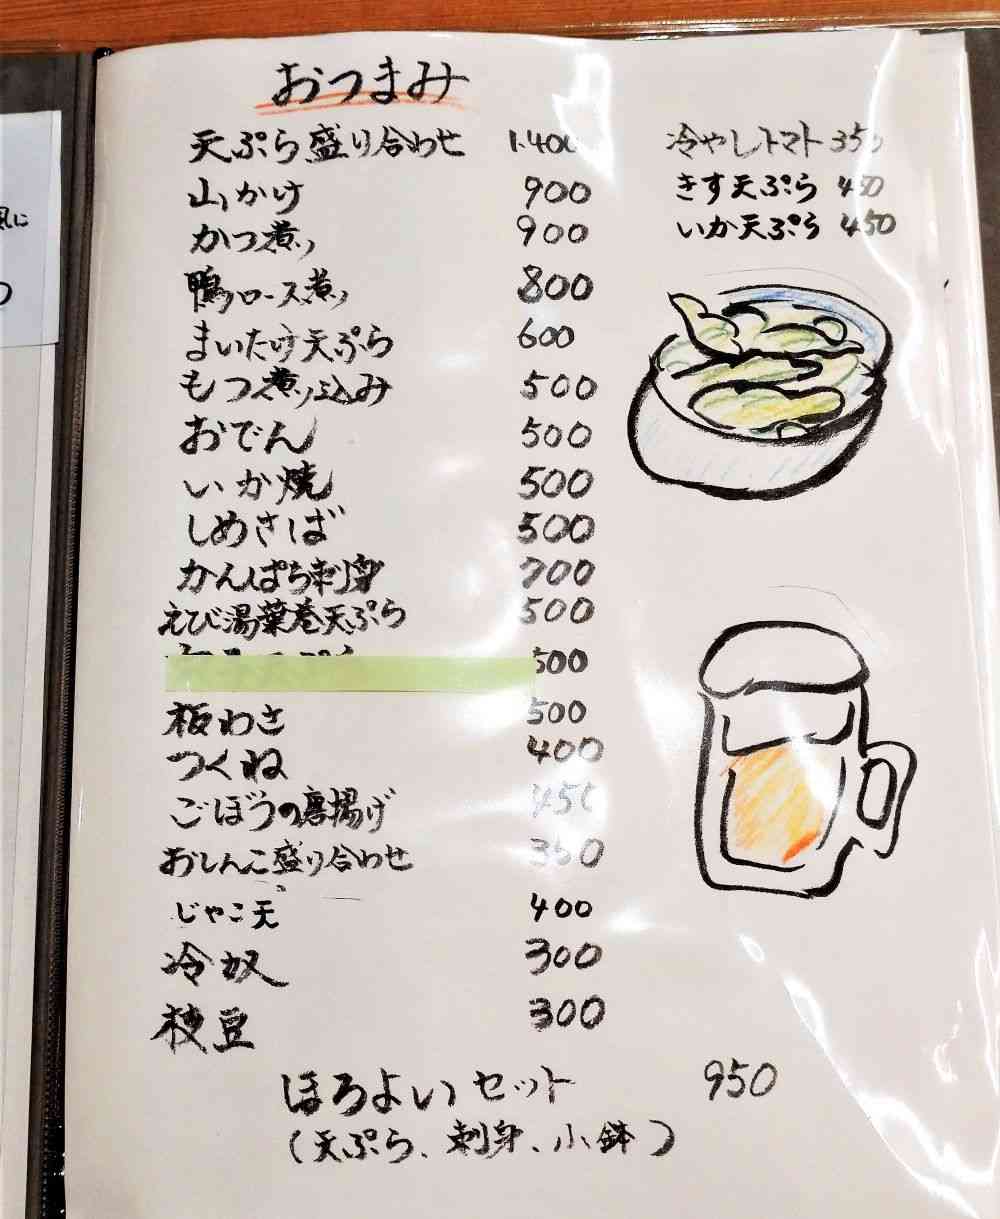 おつまみ
天ぷら盛り合わせ 1.400
山かけ 900
かつ煮 900
鴨ロース煮 800
まいたけ天ぷら 600
もつ煮込み 500
おでん 500
いか焼 500
しめさば 500
かんぱち刺身 700
えび湯葉巻天ぷら 500
500
板わさ 500
つくね 400
ごぼうの唐揚げ 450
おしんこ盛り合わせ 350
じゃこ天 400
冷奴 300
枝豆 300
ほろよいセット 950
(天ぷら、刺身、小鉢)
冷やしトマト 350
きす天ぷら 450
いか天ぷら 450